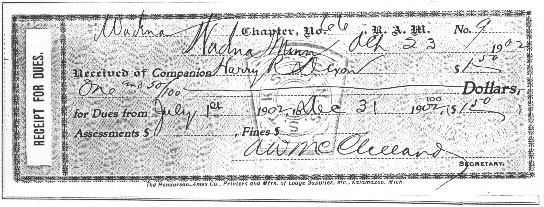 RECEIPT FOR DUES.
Wadena Chapter, No. 66 , R. A. M. No. 9
Wadena Minn Oct 23 1902
Received of Companion Harry R Dixon $1.50
One and 50/100 Dollars,
for Dues from July 1st 1902, to Dec 31 1902, $1.50
Assessments $ , Fines $
A W McClelland
SECRETARY.
The Henderson-Ames Co., Printers and Mfrs. of Lodge Supplies, etc., Kalamazoo, Mich.